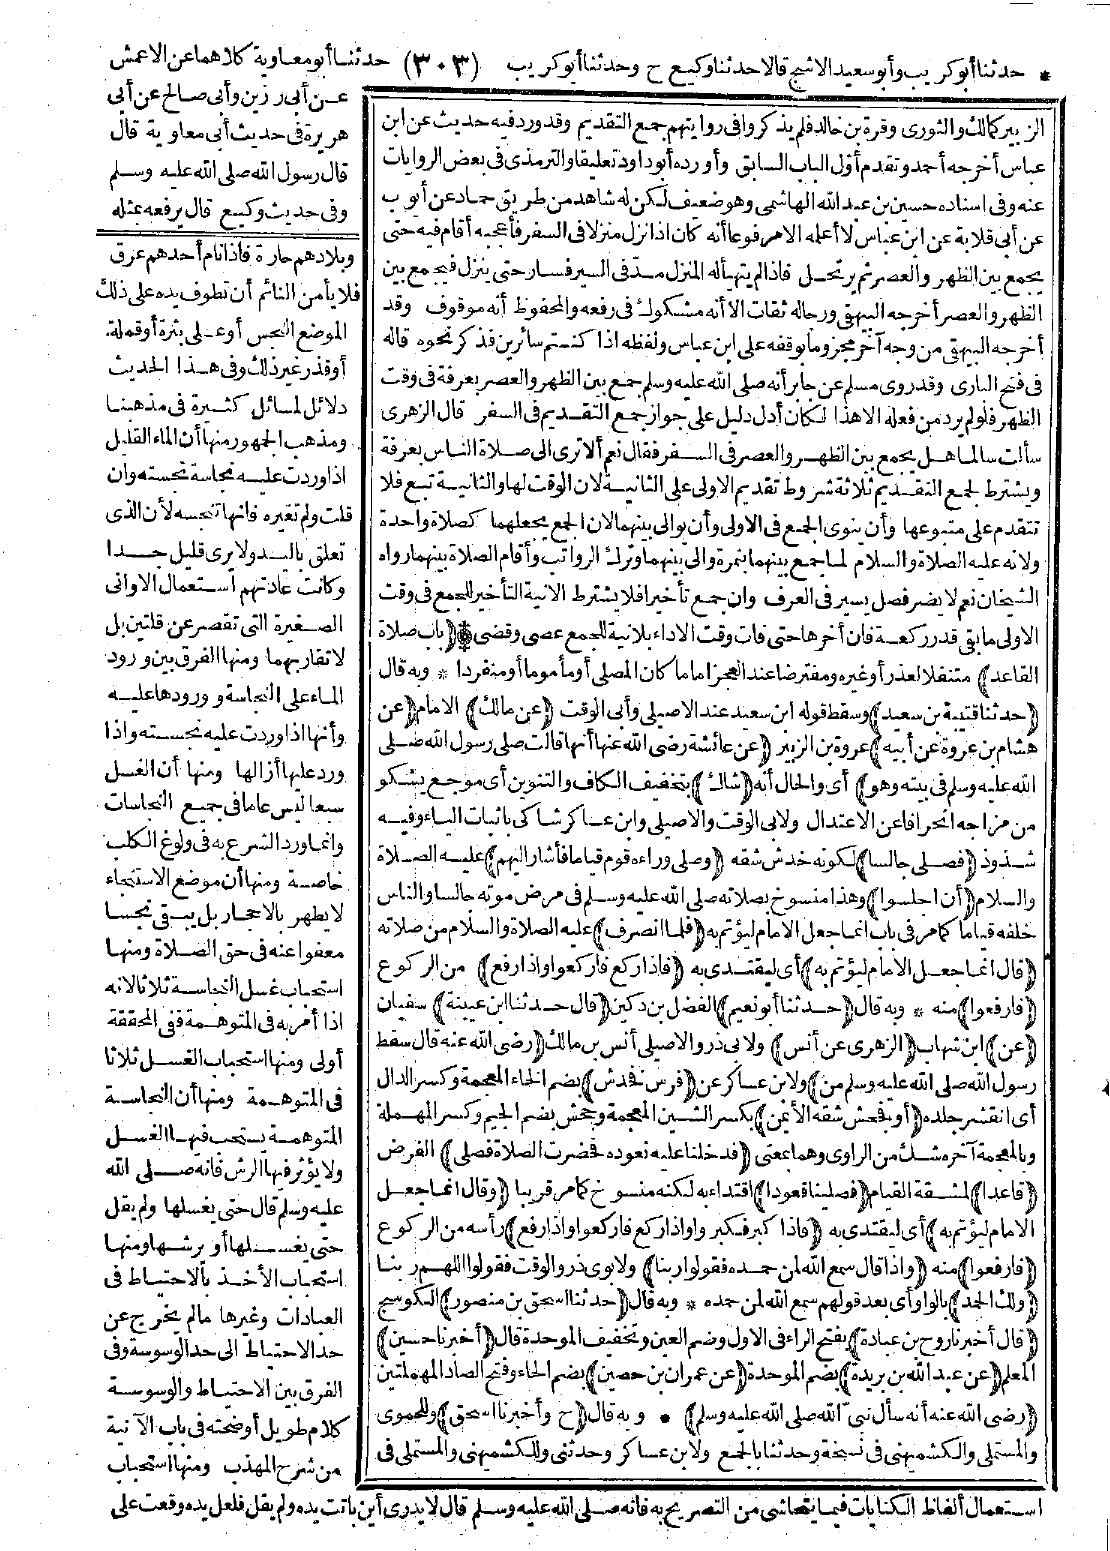 * حدثنا أبو كريب وأبو سعيد الاشج قالا حدثنا وكيع ح وحدثنا أبو كريب (٣٠٣) حدثنا أبو معاوية كلاهما عن الاعمش
عن أبى رزين وأبى صالح عن أبى
هريرة فى حديث أبى معاوية قال
قال رسول الله صلى الله عليه وسلم
وفى حديث وكيع قال يرفعه بمثله
وبلادهم حارة فاذا نام أحدهم عرق
فلا يأمن النائم أن تطوف يده على ذلك
الموضع النجس أو على بثرة أو قملة
أو قذر غير ذلك وفى هذا الحديث
دلائل لمسائل كثيرة فى مذهبنا
ومذهب الجمهور منها أن الماء القليل
اذا وردت عليه نجاسة نجسته وان
قلت ولم تغيره فانها تنجسه لأن الذى
تعلق باليد ولا يرى قليل جدا
وكانت عادتهم استعمال الاوانى
الصغيرة التى تقصر عن قلتين بل
لا تقاربهما ومنها الفرق بين ورود
الماء على النجاسة وورودها عليه
وأنها اذا وردت عليه نجسته واذا
ورد عليها أزالها ومنها أن الغسل
سبعا ليس عاما فى جميع النجاسات
وانما ورد الشرع به فى ولوغ الكلب
خاصة ومنها أن موضع الاستنجاء
لا يطهر بالاحجار بل يبقى نجسا
معفوا عنه فى حق الصلاة ومنها
استحباب غسل النجاسة ثلاثا لانه
اذا أمر به فى المتوهمة ففى المحققة
أولى ومنها استحباب الغسل ثلاثا
فى المتوهمة ومنها أن النجاسة
المتوهمة يستحب فيها الغسل
ولا يؤثر فيها الرش فانه صلى الله
عليه وسلم قال حتى يغسلها ولم يقل
حتى يغسلها أو يرشها ومنها
استحباب الأخذ بالاحتياط فى
العبادات وغيرها مالم يخرج عن
حد الاحتياط الى حد الوسوسة وفى
الفرق بين الاحتياط والوسوسة
كلام طويل أوضحته فى باب الآنية
من شرح المهذب ومنها استحباب
الزبير كمالك والثورى وقرة بن خالد فلم يذكروا فى روايتهم جمع التقديم وقد ورد فيه حديث عن ابن
عباس أخرجه أحمد وتقدم أول الباب السابق وأورده أبو داود تعليقا والترمذى فى بعض الروايات
عنه وفى اسناده حسين بن عبد الله الهاشمى وهو ضعيف لكن له شاهد من طريق حماد عن أيوب
عن أبى قلابة عن ابن عباس لا أعلمه الا مرفوعا أنه كان اذا نزل منزلا فى السفر فأعجبه أقام فيه حتى
يجمع بين الظهر والعصر ثم يرتحل فاذا لم يتهيأ له المنزل مد فى السير فسار حتى ينزل فيجمع بين
الظهر والعصر أخرجه البيهقى ورجاله ثقات الا أنه مشكوك فى رفعه والمحفوظ أنه موقوف وقد
أخرجه البيهقى من وجه آخر مجزوما بوقفه على ابن عباس ولفظه اذا كنتم سائرين فذكر نحوه قاله
فى فتح البارى وقد روى مسلم عن جابر أنه صلى الله عليه وسلم جمع بين الظهر والعصر بعرفة فى وقت
الظهر فلو لم يرد من فعله الا هذا لكان أدل دليل على جواز جمع التقديم فى السفر قال الزهرى
سألت سالما هل يجمع بين الظهر والعصر فى السفر فقال نعم ألا ترى الى صلاة الناس بعرفة
ويشترط لجمع التقديم ثلاثة شروط تقديم الاولى على الثانية لان الوقت لها والثانية تبع فلا
تتقدم على متبوعها وأن ينوى الجمع فى الاولى وأن يوالى بينهما لان الجمع يجعلهما كصلاة واحدة
ولانه عليه الصلاة والسلام لما جمع بينهما بنمرة والى بينهما وترك الرواتب وأقام الصلاة بينهما رواه
الشيخان نعم لا يضر فصل يسير فى العرف وان جمع تأخيرا فلا يشترط الا نية التأخير للجمع فى وقت
الاولى ما بقى قدر ركعة فان أخرها حتى فات وقت الاداء بلا نية للجمع عصى وقضى * (باب صلاة
القاعد) متنفلا لعذر أو غيره ومفترضا عند العجز اماما كان المصلى أو مأموما أو منفردا * وبه قال
(حدثنا قتيبة بن سعيد) وسقط قوله ابن سعيد عند الاصيلى وأبى الوقت (عن مالك) الامام (عن
هشام بن عروة عن أبيه) عروة بن الزبير (عن عائشة رضى الله عنها أنها قالت صلى رسول الله صلى
الله عليه وسلم فى بيته وهو) أى والحال أنه (شاك) بتخفيف الكاف والتنوين أى موجع يشكو
من مزاجه انحرافا عن الاعتدال ولابى الوقت والاصيلى وابن عساكر شاكى باثبات الياء وفيه
شذوذ (فصلى جالسا) لكونه خدش شقه (وصلى وراءه قوم قياما فأشار اليهم) عليه الصلاة
والسلام (أن اجلسوا) وهذا منسوخ بصلاته صلى الله عليه وسلم فى مرض موته جالسا والناس
خلفه قياما كما مر فى باب انما جعل الامام ليؤتم به (فلما انصرف) عليه الصلاة والسلام من صلاته
(قال انما جعل الامام ليؤتم به) أى ليقتدى به (فاذا ركع فاركعوا واذا رفع) من الركوع
(فارفعوا) منه * وبه قال (حدثنا أبو نعيم) الفضل بن دكين (قال حدثنا ابن عيينة) سفيان
(عن) ابن شهاب (الزهرى عن أنس) ولابى ذر والاصيلى أنس بن مالك (رضى الله عنه قال سقط
رسول الله صلى الله عليه وسلم من) ولابن عساكر عن (فرس فخدش) بضم الخاء المعجمة وكسر الدال
أى انقشر جلده (أو فجحش شقه الأيمن) بكسر الشين المعجمة وجحش بضم الجيم وكسر المهملة
وبالمعجمة آخره شك من الراوى وهما بمعنى (فدخلنا عليه نعوده فحضرت الصلاة فصلى) الفرض
(قاعدا) لمشقة القيام (فصلينا قعودا) اقتداء به لكنه منسوخ كما مر قريبا (وقال انما جعل
الامام ليؤتم به) أى ليقتدى به (فاذا كبر فكبروا واذا ركع فاركعوا واذا رفع) رأسه من الركوع
(فارفعوا) منه (واذا قال سمع الله لمن حمده فقولوا ربنا) ولابوى ذر والوقت فقولوا اللهم ربنا
(ولك الحمد) بالواو أى بعد قولهم سمع الله لمن حمده * وبه قال (حدثنا اسحق بن منصور) الكوسج
(قال أخبرنا روح بن عبادة) بفتح الراء فى الاول وضم العين وتخفيف الموحدة قال (أخبرنا حسين)
المعلم (عن عبد الله بن بريدة) بضم الموحدة (عن عمران بن حصين) بضم الحاء وفتح الصاد المهملتين
(رضى الله عنه أنه سأل نبى الله صلى الله عليه وسلم) * وبه قال (ح وأخبرنا اسحق) وللحموى
والمستملى والكشميهنى فى نسخة وحدثنا بالجمع ولابن عساكر وحدثنى وللكشميهنى والمستملى فى
استعمال ألفاظ الكنايات فيما يتحاشى من التصريح به فانه صلى الله عليه وسلم قال لا يدرى أين باتت يده ولم يقل فلعل يده وقعت على